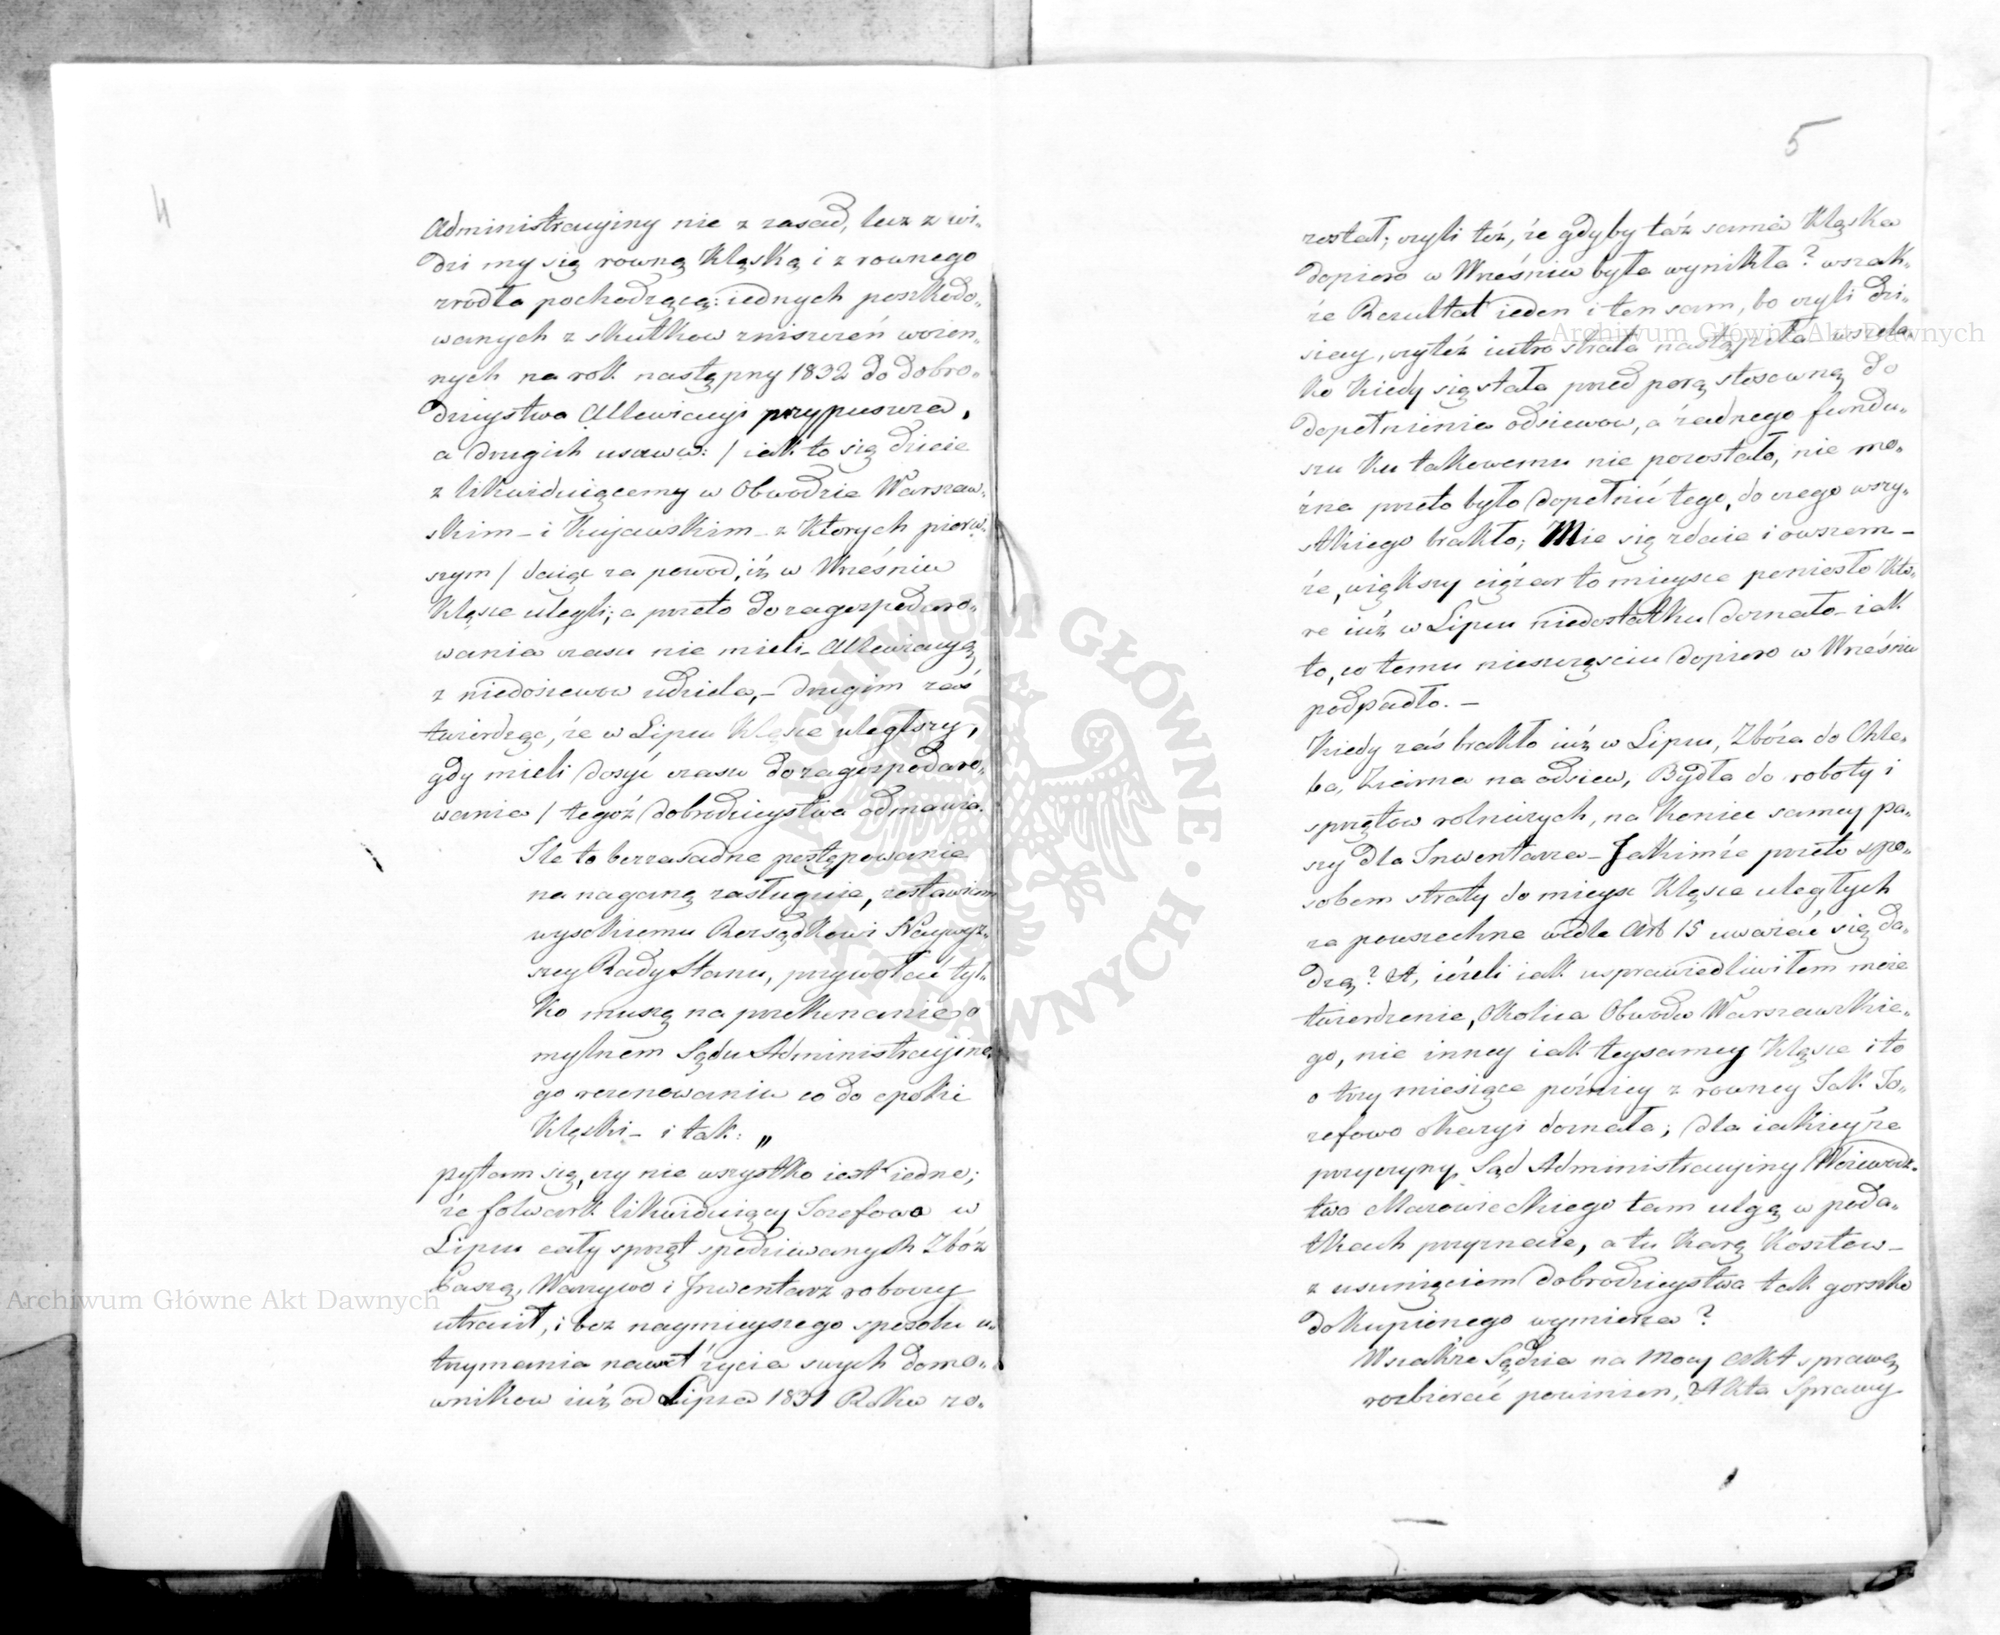 4
Administracyiny nie z zasad, lecz z wi-
dzi my się rowną klęską i z rownego
zrodła pochodzącą: iednych poszkodo-
wanych z skutkow zniszczeń woien-
nych na rok następny 1832 do dobro-
dzieystwa Allewiacyi przypuszcza,
a drugich usuwa: / iak to się dzieie
z likwiduiącemy w Obwodzie Warszaw-
skim - i Kujawskim - z Ktorych pierw-
szym / daiąc za powod, iż w Wrześniu
Klęsce ulegli; a przeto do zagospodaro-
wania czasu nie mieli - Allewiacyą
z niedosiewow udziela, - drugim zaś
twierdząc, że w Lipcu Klęsce uległszy,
gdy mieli dosyć czasu do zagospodaro-
wania / tegoż dobrodzieystwa odmawia.
Ile to bezzasadne postępowanie
na naganę zasługuie, zostawiam
wysokiemu Rozsądkowi Naywyż-
szey Rady Stanu, przywołać tyl-
ko muszę na przekonanie o
mylnem Sądu Administracyine-
go rezonowaniu co do epoki
Klęski - i tak: „
pytam się, czy nie wszystko iest iedno;
że folwark likwiduiący Jozefowo w
Lipcu cały sprzęt spodziewanych Zbóż
Paszą, Warzywo i Inwentarz roboczy
utracił, i bez naymnieyszego sposobu u-
trzymania nawet życia swych domo-
wnikow iuż od Lipca 1831 Roku zo-
5
został; czyli też, że gdyby taż sama Klęska
dopioro w Wrześniu była wynikła? wszak-
że Rezultat ieden i ten sam, bo czyli dzi-
siay, czyteż iutro strata nastąpiła wszela
ko kiedy się stała przed porą stosowną do
dopełnienia odsiewow, a żadnego fundu-
szu ku takowemu nie pozostało, nie mo-
żna przeto było dopełnić tego, do czego wszy-
stkiego brakło; Mie się zdaie i owszem -
że, większy ciężar to mieysce poniosło kto-
re iuż w Lipcu niedostatku doznało - iak
to, co temu nieszczęściu dopioro w Wrześniu
podpadło. -
Kiedy zaś brakło iuż w Lipcu, Zbóża do Chle-
ba, Ziarna na odsiew, Bydła do roboty i
sprzętow rolniczych, na Koniec samey pa-
szy dla Inwentarza - Jakimże przeto spo-
sobem straty do mieysc Klęsce uległych
za powszechne wedle Art 15 uważać się da-
dzą? A, ieżeli iak usprawiedliwiłem moie
twierdzenie, okolica Obwodu Warszawskie-
go, nie inney iak teysamey Klęsce i to
o trzy miesiące pózniey z rowney Jak Jo-
zefowo Okazyi doznała; dla iakieyże
przyczyny Sąd Administracyiny Woiewodz-
twa Mazowieckiego tam ulgę w poda-
tkach przyznaie, a tu Karę Kosztow -
z usunięciem dobrodzieystwa tak gorzko
dokupionego wymierza?
Wszakże Sędzia na mocy Akt sprawę
rozbierać powinien, Akta Sprawy
Archiwum Główne Akt Dawnych
Archiwum Główne Akt Dawnych
ARCHIWUM GŁÓWNE · AKT DAWNYCH ·